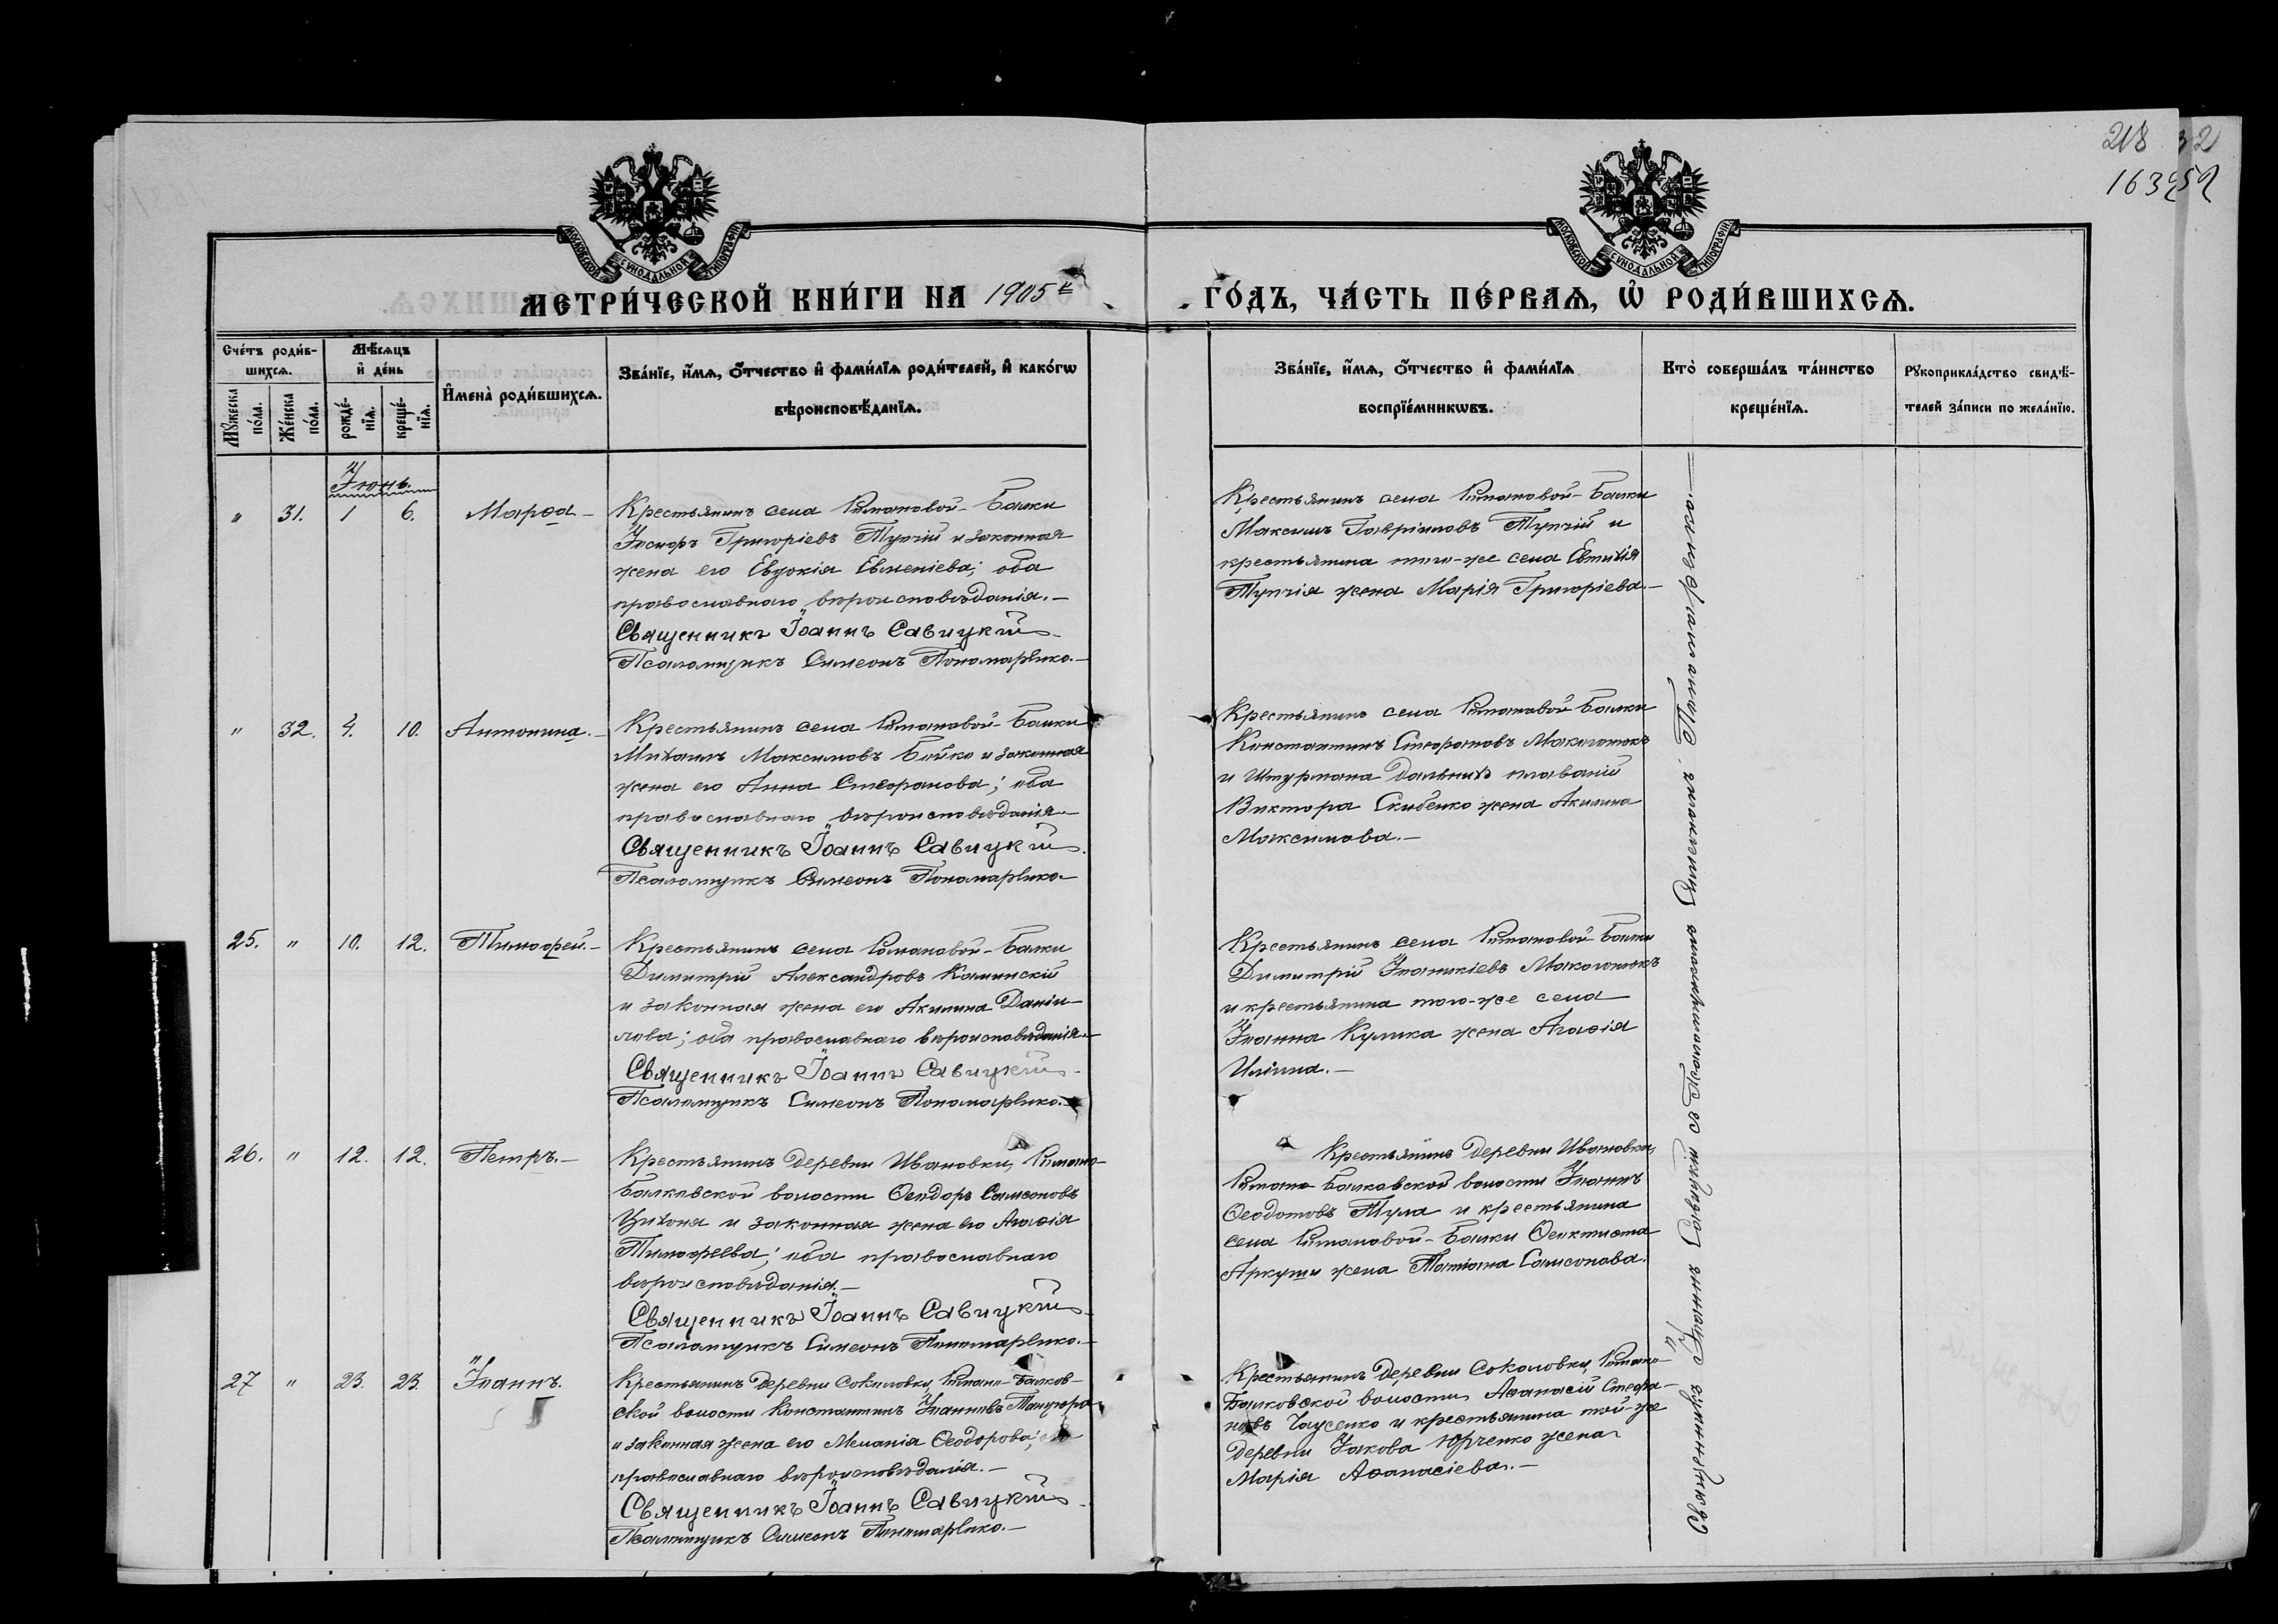 218 32
163 252
МОСКОВСКОЙ СѴНОДАЛЬНОЙ ТИПОГРАФІИ
МОСКОВСКОЙ СѴНОДАЛЬНОЙ ТИПОГРАФІИ
МЕТРИ́ЧЕСКОЙ КНИ́ГИ НА 1905й
ГО́ДЪ, ЧА́СТЬ ПЕ́РВАѦ, Ѡ҆ РОДИ́ВШИХСѦ.
Сче́тъ роди́в-
шихсѧ.
Мꙋ́жеска по́ла.
Же́нска по́ла.
Мѣ́сѧцъ
и҆ де́нь
рожде́-
нїѧ.
креще́-
нїѧ.
И҆мена̀ роди́вшихсѧ.
Зва́нїе, и҆́мѧ, ѻ҆́тчество и҆ фами́лїѧ роди́телей, и҆ како́гѡ
вѣроисповѣ́данїѧ.
Зва́нїе, и҆́мѧ, ѻ҆́тчество и҆ фами́лїѧ
воспрїе́мникѡвъ.
Кто̀ соверша́лъ та́инство
креще́нїѧ.
Рꙋкоприкла́дство свидѣ́-
телей за́писи по жела́нїю.
Іюнь.
" 31. 1 6. Марѳа –
Крестьянинъ села Романовой-Балки
Григоріевъ Тупчій и законная
жена его Евдокія Евменіева; оба
православнаго вѣроисповѣданія.–
Священникъ Іоаннъ Савицкій
Псаломщикъ Симеонъ Пономаренко.–
Крестьянинъ села Романовой-Балки
Максимъ Гавріиловъ Тупчій и
крестьянина того-же села Евтихія
Тупчія жена Марія Григоріева.–
" 32. 4. 10. Антонина.–
Крестьянинъ села Романовой-Балки
Михаилъ Максимовъ Бойко и законная
жена его Анна Стефанова; оба
православнаго вѣроисповѣданія.–
Священникъ Іоаннъ Савицкій
Псаломщикъ Симеонъ Пономаренко.–
Крестьянинъ села Романовой-Балки
Константинъ Стефановъ Макогонюкъ
и Штурмана дальнихъ плаваній
Виктора Скибенко жена Акилина
Максимова.–
25. " 10. 12. Тимоѳей.–
Крестьянинъ села Романовой-Балки
Димитрій Александровъ Калинскій
и законная жена его Акилина Даніи-
лова; оба православнаго вѣроисповѣданія.–
Священникъ Іоаннъ Савицкій
Псаломщикъ Симеонъ Пономаренко.–
Крестьянинъ села Романовой-Балки
Димитрій Іоанникіевъ Макогонюкъ
и крестьянина того-же села
Іоанна Кулика жена Агаѳія
Иліина.–
26. " 12. 12. Петръ.–
Крестьянинъ деревни Ивановки, Романо-
Балковской волости Ѳеодоръ Самсоновъ
Цихоня и законная жена его Агаѳія
Тимоѳеева; оба православнаго
вѣроисповѣданія.–
Священникъ Іоаннъ Савицкій
Псаломщикъ Симеонъ Пономаренко.–
Крестьянинъ деревни Ивановки,
Романо-Балковской волости Іоаннъ
Ѳеодотовъ Тула и крестьянина
села Романовой-Балки Ѳеоктиста
Аркуши жена Татіана Самсонова.
27 " 23. 23. Іоаннъ.
Крестьянинъ деревни Соколовки, Романо-Балков-
ской волости Константинъ Іоанновъ
и законная жена его Меланія Ѳеодорова; оба
православнаго вѣроисповѣданія.–
Священникъ Іоаннъ Савицкій
Псаломщикъ Симеонъ Пономаренко.–
Крестьянинъ деревни Соколовки, Романо-
Балковской волости, Аѳанасій Стефа-
новъ Чаусенко и крестьянина той-же
деревни Іакова Юрченко жена
Марія Аѳанасіева.–
Священникъ Іоаннъ Савицкій со Псаломщикомъ Симеономъ Пономаренко.–